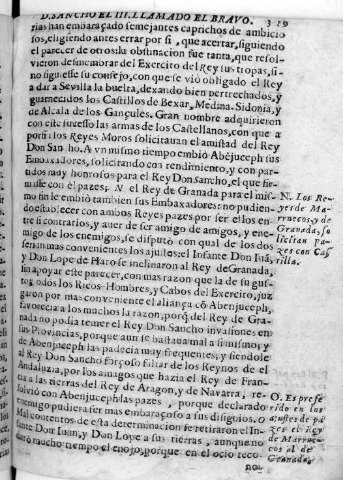 D. SANCHO EL III. LLAMADO EL BRAVO. 319
rias han embarçado semejantes caprichos de ambicio
sos, eligiendo antes errar por si, que acertar, siguiendo
el parecer de otros: la obstinacion fue tanta, que resol-
vieron desmembrar del Exercito del Rey sus tropas, si-
no siguiesse su consejo, con que se viò obligado el Rey
a dar a Sevilla la buelta, dexando bien pertrechados, y
guarnecidos los Castillos de Bexar, Medina Sidonia, y
de Alcala de los Gançules. Gran nombre adquirieron
con este sucesso las armas de los Castellanos, con que a
porfia los Reyes Moros solicitauan el amistad del Rey
Don Sancho. A vn mismo tiempo embiò Abējuceph sus
Embaxadores, solicitando con rendimiento, y con par-
tidos muy honrosos para el Rey Don Sancho, el que fir-
masse con el pazes; N el Rey de Granada para el mis-
mo fin le embiò tambien sus Embaxadores: no pudien-
do establecer con ambos Reyes pazes por ser ellos en-
tre si contrarios, y auer de ser amigo de amigos, y ene-
migo de los enemigos, se disputò con qual de los dos
serian mas convenientes los ajustes: el Infante Don Juā,
y Don Lope de Haro se inclinaron al Rey de Granada,
sin apoyar este parecer, con mas razon que la de su gus-
to; todos los Ricos-Hombres, y Cabos del Exercito, juz
garon por mas conveniente el aliança cō Abenjuceph,
favorecia a los muchos la razon, porq̄ del Rey de Gra-
nada no podia temer el Rey Don Sancho invasiones en
sus Provincias, porque aun se bastaua mal a si mismo; y
de Abenjuceph las padecia muy frequentes, y siendole
al Rey Don Sancho forçoso faltar de los Reynos de el
Andaluzia, por los amagos que hazia el Rey de Fran-
cia a las tierras del Rey de Aragon, y de Navarra, re-
solviò con Abenjuceph las pazes, porque declarado
enemigo pudiera ser mas embaraçoso a sus disignios. O
Mal contentos de esta determinacion se retiraron el In-
fante Don Iuan, y Don Lope a sus tierras, aunque no
durò mucho tiempo el enojo, porque en el ocio reco-
no-
N. Los Re-
yes de Ma-
rruecos, y de
Granada, so-
licitan pa-
zes con Cas-
tilla.
O. Es prefe-
rido en los
ajustes de pa-
zes el Rey
de Marrue-
cos al de
Granada.